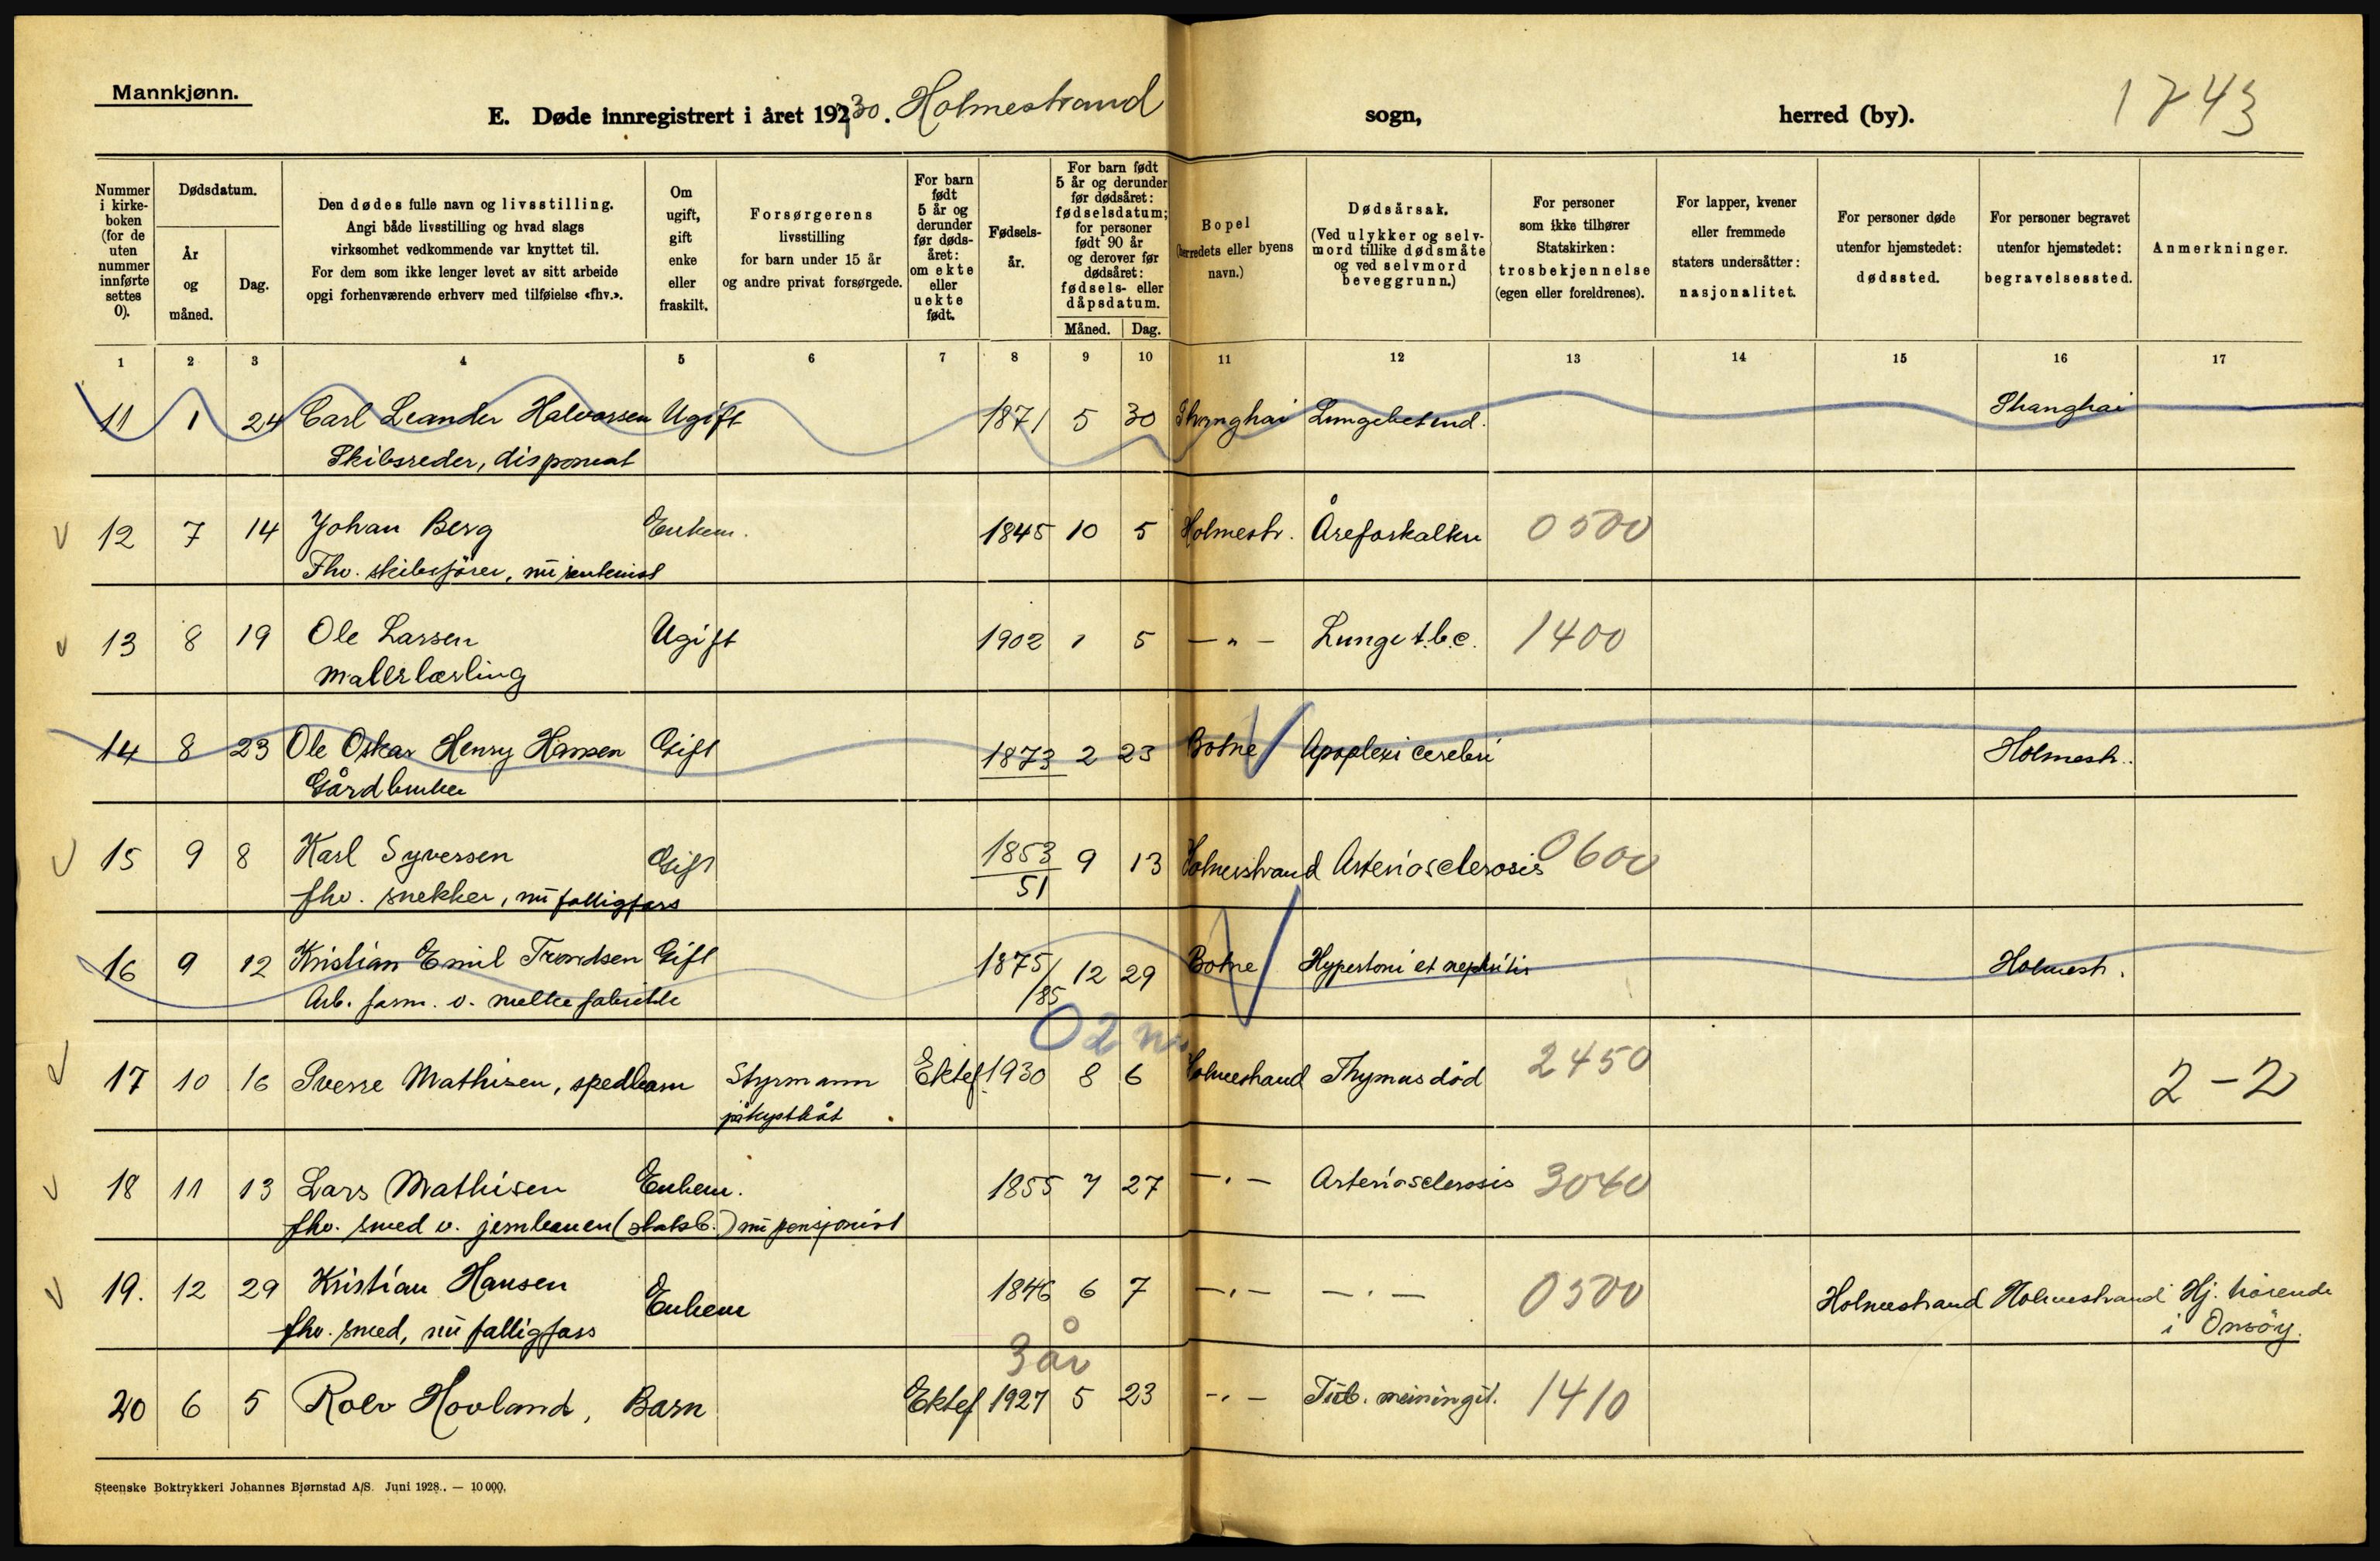 Mannkjønn.
E. Døde innregistrert i året 192 30. Holmestrand sogn, herred (by). 1743
Nummer i kirke-boken (for de uten nummer innførte settes 0).
Dødsdatum.
År og måned.
Dag.
Den dødes fulle navn og livsstilling.
Angi både livsstilling og hvad slags
virksomhet vedkommende var knyttet til.
For dem som ikke lenger levet av sitt arbeide
opgi forhenværende erhverv med tilføielse «fhv.».
Om ugift, gift enke eller fraskilt.
Forsørgerens
livsstilling
for barn under 15 år
og andre privat forsørgede.
For barn født 5 år og derunder før døds-året: om ekte eller uekte født.
Fødsels-år.
For barn født 5 år og derunder før dødsåret: fødselsdatum; for personer født 90 år og derover før dødsåret: fødsels- eller dåpsdatum.
Måned. Dag.
Bopel
(herredets eller byens
navn.)
Dødsårsak.
(Ved ulykker og selv-
mord tillike dødsmåte
og ved selvmord
beveggrunn.)
For personer
som ikke tilhører
Statskirken:
trosbekjennelse
(egen eller foreldrenes).
For lapper, kvener
eller fremmede
staters undersåtter:
nasjonalitet.
For personer døde
utenfor hjemstedet:
dødssted.
For personer begravet
utenfor hjemstedet:
begravelsessted.
Anmerkninger.
1 2 3 4 5 6 7 8 9 10 11 12 13 14 15 16 17
11 1 24 Carl Leander Halvorsen Ugift 1871 5 30 Shanghai Lungebetend. Shanghai
Skibsreder, disponent
12 7 14 Johan Berg Enkem. 1845 10 5 Holmestr. Åreforkalkn 0500
Fhv. skibsfører, nu rentenist
13 8 19 Ole Larsen Ugift 1902 1 5 — „ — Lunge t.b.c. 1400
Malerlærling
14 8 23 Ole Oskar Henry Hansen Gift 1873 2 23 Botne Apoplexi cerebri Holmestr.
Gårdbruker
15 9 8 Karl Syversen Gift 1853 9 13 Holmestrand Arteriosclerosis 0600
51
fhv. snekker, nu fattigfors
16 9 12 Kristian Emil Trondsen Gift 1875 12 29 Botne Hypertoni et nephritis Holmestr.
/85
Arb. form. v. melkefabrikk
02 m.
17 10 16 Sverre Mathisen, spedbarn Styrmann Ektef 1930 8 6 Holmestrand Thymusdöd 2450 2 - 2
på kystbåt
18 11 13 Lars Mathisen Enkem. 1855 7 27 — „ — Arteriosclerosis 3040
fhv. smed v. jernbanen (statsb.) nu pensjonist
19. 12 29 Kristian Hansen Enkem 1846 6 7 — „ — — „ — 0500 Holmestrand Holmestrand Hj. hörende
i Onsöy.
fhv. smed, nu fattigfors
3 år
20 6 5 Rolv Hovland, Barn Ektef 1927 5 23 — „ — Tub. meiningit. 1410
Steenske Boktrykkeri Johannes Bjørnstad A/S. Juni 1928. — 10 000.